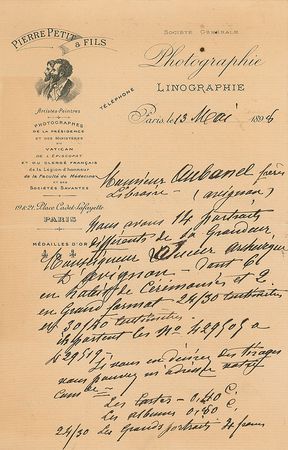 PIERRE PETIT
& FILS
SOCIÉTÉ GÉNÉRALE
Photographie
LINOGRAPHIE
TÉLÉPHONE
Paris, le 13 Mai 1896
Artistes-Peintres
PHOTOGRAPHES
DE LA PRÉSIDENCE
ET DES MINISTÈRES
DU
VATICAN
DE L'ÉPISCOPAT
ET DU CLERGÉ FRANÇAIS
de la Légion d'honneur
de la Faculté de Médecine
ET DES
SOCIÉTÉS SAVANTES
19 & 21, Place Cadet-Lafayette
PARIS
MÉDAILLES D'OR
Monsieur Aubanel frères
Libraire - (avignon)
Nous avons 14 portraits
différents de sa Grandeur
Monseigneur archevêque
d'avignon - Dont 6
en de Cérémonies et 2
en Grand format - 24/30
et 30/40
portent les Nos 429505 a
429519 -
Si vous en désirez des tirages
vous pouvez m'adresser
Les Cartes - 0.40 C.
Les albums 0.80 C.
24/30 Les Grands portraits francs